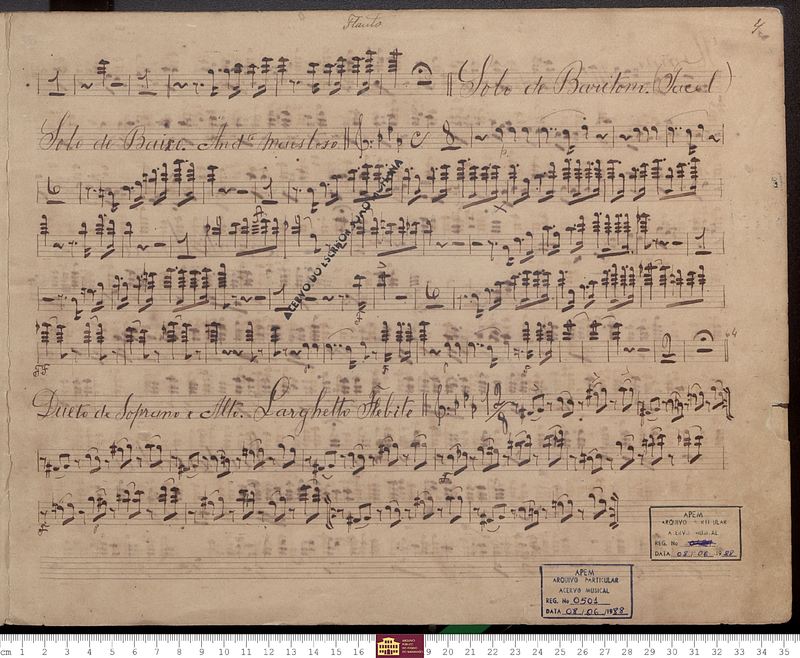 Flauto
Solo de Baritom. (Tacet)
Solo de Baixo. Andᵉ maestoso
ACERVO DO ESCRITOR JOÃO MOHANA
Dueto de Soprano e Alto. Larghetto Flebile
APEM
ARQUIVO PARTICULAR
ACERVO MUSICAL
REG. No
DATA 08/06/1988
APEM
ARQUIVO PARTICULAR
ACERVO MUSICAL
REG. No 0501
DATA 08/06/1988
cm 1 2 3 4 5 6 7 8 9 10 11 12 13 14 15 16 19 20 21 22 23 24 25 26 27 28 29 30 31 32 33 34 35